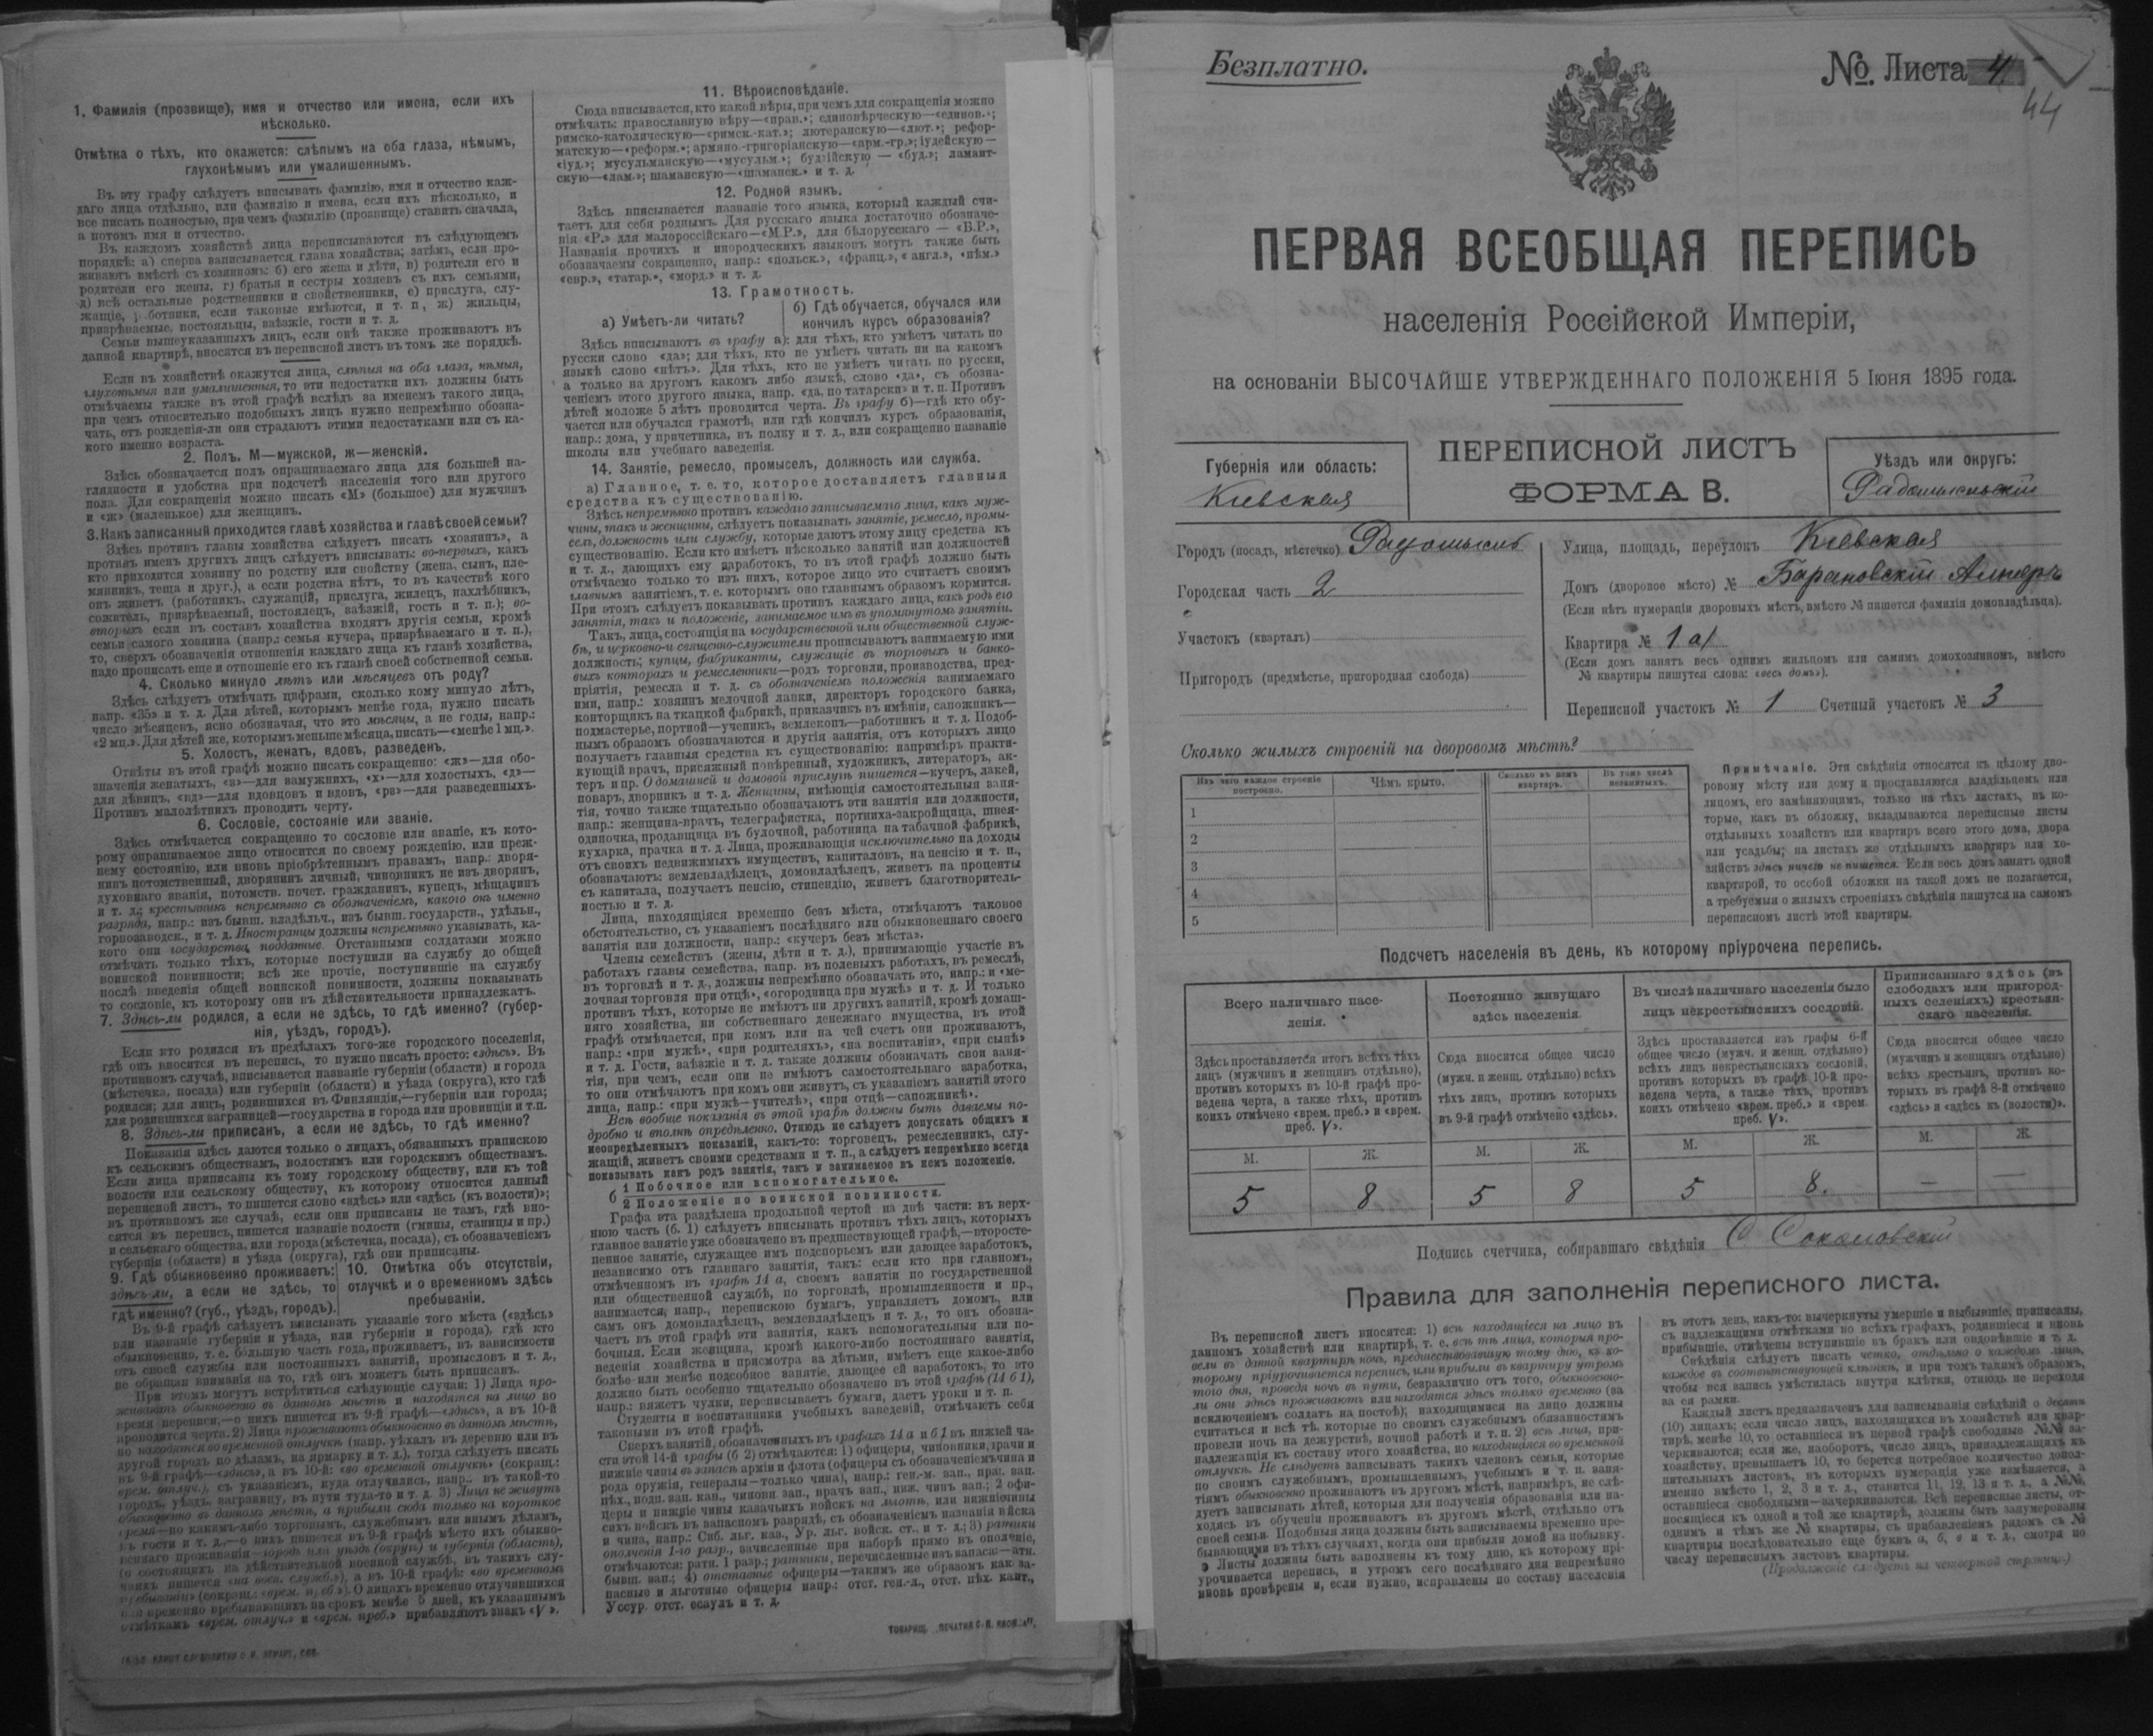 1. Фамилія (прозвище), имя и отчество или имена, если ихъ
нѣсколько.
Отмѣтка о тѣхъ, кто окажется: слѣпымъ на оба глаза, нѣмымъ,
глухонѣмымъ или умалишеннымъ.
Въ эту графу слѣдуетъ вписывать фамилію, имя и отчество каж-
даго лица отдѣльно, или фамилію и имена, если ихъ нѣсколько, и
все писать полностью, при чемъ фамилію (прозвище) ставить сначала,
а потомъ имя и отчество.
Въ каждомъ хозяйствѣ лица переписываются въ слѣдующемъ
порядкѣ: а) сперва записывается глава хозяйства; затѣмъ, если про-
живаютъ вмѣстѣ съ хозяиномъ: б) его жена и дѣти, в) родители его и
родители его жены, г) братья и сестры хозяевъ съ ихъ семьями,
д) всѣ остальные родственники и свойственники, е) прислуга, слу-
жащіе, работники, если таковые имѣются, и т. п., ж) жильцы,
призрѣваемые, постояльцы, заѣзжіе, гости и т. д.
Семьи вышеуказанныхъ лицъ, если онѣ также проживаютъ въ
данной квартирѣ, вносятся въ переписной листъ въ томъ же порядкѣ.
Если въ хозяйствѣ окажутся лица, слѣпыя на оба глаза, нѣмыя,
глухонѣмыя или умалишенныя, то эти недостатки ихъ должны быть
отмѣчаемы также въ этой графѣ вслѣдъ за именемъ такого лица,
при чемъ относительно подобныхъ лицъ нужно непремѣнно обозна-
чать, отъ рожденія-ли они страдаютъ этими недостатками или съ ка-
кого именно возраста.
2. Полъ. М—мужской, ж—женскій.
Здѣсь обозначается полъ опрашиваемаго лица для большей на-
глядности и удобства при подсчетѣ населенія того или другого
пола. Для сокращенія можно писать «М» (большое) для мужчинъ
и «ж» (маленькое) для женщинъ.
3. Какъ записанный приходится главѣ хозяйства и главѣ своей семьи?
Здѣсь противъ главы хозяйства слѣдуетъ писать «хозяинъ», а
противъ именъ другихъ лицъ слѣдуетъ вписывать: во-первыхъ, какъ
кто приходится хозяину по родству или свойству (жена, сынъ, пле-
мянникъ, теща и друг.), а если родства нѣтъ, то въ качествѣ кого
онъ живетъ (работникъ, служащій, прислуга, жилецъ, нахлѣбникъ,
сожитель, призрѣваемый, постоялецъ, заѣзжій, гость и т. п.); во-
вторыхъ если въ составъ хозяйства входятъ другія семьи, кромѣ
семьи самого хозяина (напр.: семья кучера, призрѣваемаго и т. п.),
то, сверхъ обозначенія отношенія каждаго лица къ главѣ хозяйства,
надо прописать еще и отношеніе его къ главѣ своей собственной семьи.
4. Сколько минуло лѣтъ или мѣсяцевъ отъ роду?
Здѣсь слѣдуетъ отмѣчать цифрами, сколько кому минуло лѣтъ,
напр. «35» и т. д. Для дѣтей, которымъ менѣе года, нужно писать
число мѣсяцевъ, ясно обозначая, что это мѣсяцы, а не годы, напр.:
«2 мц.». Для дѣтей же, которымъ меньше мѣсяца, писать—«менѣе 1 мц.».
5. Холостъ, женатъ, вдовъ, разведенъ.
Отвѣты въ этой графѣ можно писать сокращенно: «ж»—для обо-
значенія женатыхъ, «з»—для замужнихъ, «х»—для холостыхъ, «д»—
для дѣвицъ, «вд»—для вдовцовъ и вдовъ, «рв»—для разведенныхъ.
Противъ малолѣтнихъ проводить черту.
6. Сословіе, состояніе или званіе.
Здѣсь отмѣчается сокращенно то сословіе или званіе, къ кото-
рому опрашиваемое лицо относится по своему рожденію, или преж-
нему состоянію, или вновь пріобрѣтеннымъ правамъ, напр.: дворя-
нинъ потомственный, дворянинъ личный, чиновникъ не изъ дворянъ,
духовнаго званія, потомств. почет. гражданинъ, купецъ, мѣщанинъ
и т. д.; крестьянинъ непремѣнно съ обозначеніемъ, какого онъ именно
разряда, напр.: изъ бывш. владѣльч., изъ бывш. государств., удѣльн.,
горнозаводск., и т. д. Иностранцы должны непремѣнно указывать, ка-
кого они государства подданные. Отставными солдатами можно
отмѣчать только тѣхъ, которые поступили на службу до общей
воинской повинности; всѣ же прочіе, поступившіе на службу
послѣ введенія общей воинской повинности, должны показывать
то сословіе, къ которому они въ дѣйствительности принадлежатъ.
7. Здѣсь-ли родился, а если не здѣсь, то гдѣ именно? (губер-
нія, уѣздъ, городъ).
Если кто родился въ предѣлахъ того-же городского поселенія,
гдѣ онъ вносится въ перепись, то нужно писать просто: «здѣсь». Въ
противномъ случаѣ, вписывается названіе губерніи (области) и города
(мѣстечка, посада) или губерніи (области) и уѣзда (округа), кто гдѣ
родился; для лицъ, родившихся въ Финляндіи,—губерніи или города;
для родившихся заграницей—государства и города или провинціи и т.п.
8. Здѣсь-ли приписанъ, а если не здѣсь, то гдѣ именно?
Показанія здѣсь даются только о лицахъ, обязанныхъ припискою
къ сельскимъ обществамъ, волостямъ или городскимъ обществамъ.
Если лица приписаны къ тому городскому обществу, или къ той
волости или сельскому обществу, къ которому относится данный
переписной листъ, то пишется слово «здѣсь» или «здѣсь (къ волости)»;
въ противномъ же случаѣ, если они приписаны не тамъ, гдѣ вно-
сятся въ перепись, пишется названіе волости (гмины, станицы и пр.)
и сельскаго общества, или города (мѣстечка, посада), съ обозначеніемъ
губерніи (области) и уѣзда (округа), гдѣ они приписаны.
9. Гдѣ обыкновенно проживаетъ:
здѣсь-ли, а если не здѣсь, то
гдѣ именно? (губ., уѣздъ, городъ).
10. Отмѣтка объ отсутствіи,
отлучкѣ и о временномъ здѣсь
пребываніи.
Въ 9-й графѣ слѣдуетъ вписывать указаніе того мѣста («здѣсь»
или названіе губерніи и уѣзда, или губерніи и города), гдѣ кто
обыкновенно, т. е. большую часть года, проживаетъ, въ зависимости
отъ своей службы или постоянныхъ занятій, промысловъ и т. д.,
не обращая вниманія на то, гдѣ онъ можетъ быть приписанъ.
При этомъ могутъ встрѣтиться слѣдующіе случаи: 1) Лица про-
живаютъ обыкновенно въ данномъ мѣстѣ и находятся на лицо во
время переписи,—о нихъ пишется въ 9-й графѣ—«здѣсь», а въ 10-й
проводится черта. 2) Лица проживаютъ обыкновенно въ данномъ мѣстѣ,
но находятся во временной отлучкѣ (напр. уѣхалъ въ деревню или въ
другой городъ по дѣламъ, на ярмарку и т. д.), тогда слѣдуетъ писать
въ 9-й графѣ—«здѣсь», а въ 10-й: «во временной отлучкѣ» (сокращ.:
врем. отлуч.), съ указаніемъ, куда отлучились, напр., въ такой-то
городъ, уѣздъ, заграницу, въ пути туда-то и т. д. 3) Лица не живутъ
обыкновенно въ данномъ мѣстѣ, а прибыли сюда только на короткое
время—по какимъ-либо торговымъ, служебнымъ или инымъ дѣламъ,
въ гости и т. д.,—о нихъ пишется въ 9-й графѣ мѣсто ихъ обыкно-
веннаго проживанія—городъ или уѣздъ (округъ) и губернія (область),
(о состоящихъ на дѣйствительной военной службѣ, въ такихъ слу-
чаяхъ пишется «на воен. служб.»), а въ 10-й графѣ: «во временномъ
пребываніи» (сокращ.: «врем. преб.»). О лицахъ временно отлучившихся
или временно пребывающихъ на срокъ менѣе 5 дней, къ указаннымъ
отмѣткамъ «врем. отлуч.» и «врем. преб.» прибавляютъ знакъ «V».
11. Вѣроисповѣданіе.
Сюда вписывается, кто какой вѣры, при чемъ для сокращенія можно
отмѣчать: православную вѣру—«прав.»; единовѣрческую—«единов.»;
римско-католическую—«римск.-кат.»; лютеранскую—«лют.»; рефор-
матскую—«реформ.»; армяно-григоріанскую—«арм.-гр.»; іудейскую—
«іуд.»; мусульманскую—«мусульм.»; буддійскую — «буд.»; ламаит-
скую—«лам.»; шаманскую—«шаманск.» и т. д.
12. Родной языкъ.
Здѣсь вписывается названіе того языка, который каждый счи-
таетъ для себя роднымъ. Для русскаго языка достаточно обозначе-
нія «Р.» для малороссійскаго—«М.Р.», для бѣлорусскаго — «Б.Р.»,
Названія прочихъ и инородческихъ языковъ могутъ также быть
обозначаемы сокращенно, напр.: «польск.», «франц.», «англ.», «нѣм.»
«евр.», «татар.», «морд.» и т. д.
13. Грамотность.
а) Умѣетъ-ли читать?
б) Гдѣ обучается, обучался или
кончилъ курсъ образованія?
Здѣсь вписываютъ въ графу а): для тѣхъ, кто умѣетъ читать по
русски слово «да»; для тѣхъ, кто не умѣетъ читать ни на какомъ
языкѣ слово «нѣтъ». Для тѣхъ, кто не умѣетъ читать по русски,
а только на другомъ какомъ либо языкѣ, слово «да», съ обозна-
ченіемъ этого другого языка, напр. «да, по татарски» и т. п. Противъ
дѣтей моложе 5 лѣтъ проводится черта. Въ графу б)—гдѣ кто обу-
чается или обучался грамотѣ, или гдѣ кончилъ курсъ образованія,
напр.: дома, у причетника, въ полку и т. д., или сокращенно названіе
школы или учебнаго заведенія.
14. Занятіе, ремесло, промыселъ, должность или служба.
а) Главное, т. е. то, которое доставляетъ главныя
средства къ существованію.
Здѣсь непремѣнно противъ каждаго записываемаго лица, какъ муж-
чины, такъ и женщины, слѣдуетъ показывать занятіе, ремесло, промы-
селъ, должность или службу, которые даютъ этому лицу средства къ
существованію. Если кто имѣетъ нѣсколько занятій или должностей
и т. д., дающихъ ему заработокъ, то въ этой графѣ должно быть
отмѣчаемо только то изъ нихъ, которое лицо это считаетъ своимъ
главнымъ занятіемъ, т. е. которымъ оно главнымъ образомъ кормится.
При этомъ слѣдуетъ показывать противъ каждаго лица, какъ родъ его
занятія, такъ и положеніе, занимаемое имъ въ упомянутомъ занятіи.
Такъ, лица, состоящія на государственной или общественной служ-
бѣ, и церковно-и священно-служители прописываютъ занимаемую ими
должность; купцы, фабриканты, служащіе въ торговыхъ и банко-
выхъ конторахъ и ремесленники—родъ торговли, производства, пред-
пріятія, ремесла и т. д. съ обозначеніемъ положенія занимаемаго
ими, напр.: хозяинъ мелочной лавки, директоръ городского банка,
конторщикъ на ткацкой фабрикѣ, приказчикъ въ имѣніи, сапожникъ—
подмастерье, портной—ученикъ, землекопъ—работникъ и т. д. Подоб-
нымъ образомъ обозначаются и другія занятія, отъ которыхъ лицо
получаетъ главныя средства къ существованію: напримѣръ практи-
кующій врачъ, присяжный повѣренный, художникъ, литераторъ, ак-
теръ и пр. О домашней и домовой прислугѣ пишется—кучеръ, лакей,
поваръ, дворникъ и т. д. Женщины, имѣющія самостоятельныя заня-
тія, точно также тщательно обозначаютъ эти занятія или должности,
напр.: женщина-врачъ, телеграфистка, портниха-закройщица, швея-
одиночка, продавщица въ булочной, работница на табачной фабрикѣ,
кухарка, прачка и т. д. Лица, проживающія исключительно на доходы
отъ своихъ недвижимыхъ имуществъ, капиталовъ, на пенсію и т. п.,
обозначаютъ: землевладѣлецъ, домовладѣлецъ, живетъ на проценты
съ капитала, получаетъ пенсію, стипендію, живетъ благотворитель-
ностью и т. д.
Лица, находящіяся временно безъ мѣста, отмѣчаютъ таковое
обстоятельство, съ указаніемъ послѣдняго или обыкновеннаго своего
занятія или должности, напр.: «кучеръ безъ мѣста».
Члены семействъ (жены, дѣти и т. д.), принимающіе участіе въ
работахъ главы семейства, напр. въ полевыхъ работахъ, въ ремеслѣ,
въ торговлѣ и т. д., должны непремѣнно обозначать это, напр.: и «ме-
лочная торговля при отцѣ», «огородница при мужѣ» и т. д. И только
противъ тѣхъ, которые не имѣютъ ни другихъ занятій, кромѣ домаш-
няго хозяйства, ни собственнаго денежнаго имущества, въ этой
графѣ отмѣчается, при комъ или на чей счетъ они проживаютъ,
напр.: «при мужѣ», «при родителяхъ», «на воспитаніи», «при сынѣ»
и т. д. Гости, заѣзжіе и т. д. также должны обозначать свои заня-
тія, при чемъ, если они не имѣютъ самостоятельнаго заработка,
то они отмѣчаютъ при комъ они живутъ, съ указаніемъ занятій этого
лица, напр.: «при мужѣ—учителѣ», «при отцѣ—сапожникѣ».
Всѣ вообще показанія въ этой графѣ должны быть даваемы по-
дробно и вполнѣ опредѣленно. Отнюдь не слѣдуетъ допускать общихъ и
неопредѣленныхъ показаній, какъ-то: торговецъ, ремесленникъ, слу-
жащій, живетъ своими средствами и т. п., а слѣдуетъ непремѣнно всегда
показывать какъ родъ занятія, такъ и занимаемое въ немъ положеніе.
б 1 Побочное или вспомогательное.
2 Положеніе по воинской повинности.
Графа эта раздѣлена продольной чертой на двѣ части: въ верх-
нюю часть (б. 1) слѣдуетъ вписывать противъ тѣхъ лицъ, которыхъ
главное занятіе уже обозначено въ предшествующей графѣ,—второсте-
пенное занятіе, служащее имъ подспорьемъ или дающее заработокъ,
независимо отъ главнаго занятія, такъ: если кто при главномъ,
отмѣченномъ въ графѣ 14 а, своемъ занятіи по государственной
или общественной службѣ, по торговлѣ, промышленности и пр.,
занимается, напр., перепискою бумагъ, управляетъ домомъ, или
самъ онъ домовладѣлецъ, землевладѣлецъ и т. д., то онъ обозна-
чаетъ въ этой графѣ эти занятія, какъ вспомогательныя или по-
бочныя. Если женщина, кромѣ какого-либо постояннаго занятія,
веденія хозяйства и присмотра за дѣтьми, имѣетъ еще какое-либо
болѣе-или менѣе подсобное занятіе, дающее ей заработокъ, то это
должно быть особенно тщательно обозначено въ этой графѣ (14 б 1),
напр.: вяжетъ чулки, переписываетъ бумаги, даетъ уроки и т. п.
Студенты и воспитанники учебныхъ заведеній, отмѣчаютъ себя
таковыми въ этой графѣ.
Сверхъ занятій, обозначенныхъ въ графахъ 14 а и б 1 въ нижней ча-
сти этой 14-й графы (б 2) отмѣчаются: 1) офицеры, чиновники, врачи и
нижніе чины въ запасѣ арміи и флота (офицеры съ обозначеніемъ чина и
рода оружія, генералы—только чина), напр.: ген.-м. зап., прап. зап.
пѣх., подп. зап. кав., чиновн. зап., врачъ зап., ниж. чинъ зап.; 2) офи-
церы и нижніе чины казачьихъ войскъ на льготѣ, или нижніе чины
сихъ войскъ въ запасномъ разрядѣ, съ обозначеніемъ названія войска
и чина, напр.: Сиб. льг. каз., Ур. льг. войск. ст., и т. д.; 3) ратники
ополченія 1-го разр., зачисленные при наборѣ прямо въ ополченіе,
отмѣчаются: ратн. 1 разр.; ратники, перечисленные изъ запаса:—ратн.
бывш. зап.; 4) отставные офицеры—такимъ же образомъ какъ за-
пасные и льготные офицеры напр.: отст. ген.-л., отст. пѣх. капт.,
Уссур. отст. есаулъ и т. д.
Безплатно.
№ Листа 4
44
ПЕРВАЯ ВСЕОБЩАЯ ПЕРЕПИСЬ
населенія Россійской Имперіи,
на основаніи ВЫСОЧАЙШЕ УТВЕРЖДЕННАГО ПОЛОЖЕНІЯ 5 Іюня 1895 года.
Губернія или область:
Кіевская
ПЕРЕПИСНОЙ ЛИСТЪ
ФОРМА В.
Уѣздъ или округъ:
Радомысльскій
Городъ (посадъ, мѣстечко) Радомысль
Городская часть 2
Участокъ (кварталъ)
Пригородъ (предмѣстье, пригородная слобода)
Улица, площадь, переулокъ Кіевская
Домъ (дворовое мѣсто) № Барановскій
(Если нѣтъ нумераціи дворовыхъ мѣстъ, вмѣсто № пишется фамилія домовладѣльца).
Квартира № 1 а/
(Если домъ занятъ весь однимъ жильцомъ или самимъ домохозяиномъ, вмѣсто
№ квартиры пишутся слова: «весь домъ»).
Переписной участокъ № 1 Счетный участокъ № 3
Сколько жилыхъ строеній на дворовомъ мѣстѣ?
Изъ чего каждое строеніе построено.
Чѣмъ крыто.
Сколько въ немъ квартиръ.
Въ томъ числѣ незанятыхъ.
1
2
3
4
5
Примѣчаніе. Эти свѣдѣнія относятся къ цѣлому дво-
ровому мѣсту или дому и проставляются владѣльцемъ или
лицомъ, его замѣняющимъ, только на тѣхъ листахъ, въ ко-
торые, какъ въ обложку, вкладываются переписные листы
отдѣльныхъ хозяйствъ или квартиръ всего этого дома, двора
или усадьбы; на листахъ же отдѣльныхъ квартиръ или хо-
зяйствъ здѣсь ничего не пишется. Если весь домъ занятъ одной
квартирой, то особой обложки на такой домъ не полагается,
а требуемыя о жилыхъ строеніяхъ свѣдѣнія пишутся на самомъ
переписномъ листѣ этой квартиры.
Подсчетъ населенія въ день, къ которому пріурочена перепись.
Всего наличнаго насе-
ленія.
Постоянно живущаго
здѣсь населенія.
Въ числѣ наличнаго населенія было
лицъ некрестьянскихъ сословій.
Приписаннаго здѣсь (въ
слободахъ или пригород-
ныхъ селеніяхъ) крестьян-
скаго населенія.
Здѣсь проставляется итогъ всѣхъ тѣхъ
лицъ (мужчинъ и женщинъ отдѣльно),
противъ которыхъ въ 10-й графѣ про-
ведена черта, а также тѣхъ, противъ
коихъ отмѣчено «врем. преб.» и «врем.
преб. V».
Сюда вносится общее число
(мужч. и женщ. отдѣльно) всѣхъ
тѣхъ лицъ, противъ которыхъ
въ 9-й графѣ отмѣчено «здѣсь».
Здѣсь проставляется изъ графы 6-й
общее число (мужч. и женщ. отдѣльно)
всѣхъ лицъ некрестьянскихъ сословій,
противъ которыхъ въ графѣ 10-й про-
ведена черта, а также тѣхъ, противъ
коихъ отмѣчено «врем. преб.» и «врем.
преб. V».
Сюда вносится общее число
(мужчинъ и женщинъ отдѣльно)
всѣхъ крестьянъ, противъ ко-
торыхъ въ графѣ 8-й отмѣчено
«здѣсь» и «здѣсь къ (волости)».
М. Ж. М. Ж. М. Ж. М. Ж.
5 8 5 8 5 8. — —
Подпись счетчика, собиравшаго свѣдѣнія С Соколовскій
Правила для заполненія переписного листа.
Въ переписной листъ вносятся: 1) всѣ находящіеся на лицо въ
данномъ хозяйствѣ или квартирѣ, т. е. всѣ тѣ лица, которыя про-
вели въ данной квартирѣ ночь, предшествовавшую тому дню, къ ко-
торому пріурочивается перепись, или прибыли въ квартиру утромъ
того дня, проведя ночь въ пути, безразлично отъ того, обыкновенно-
ли они здѣсь проживаютъ или находятся здѣсь только временно (за
исключеніемъ солдатъ на постоѣ); находящимися на лицо должны
считаться и всѣ тѣ, которые по своимъ служебнымъ обязанностямъ
провели ночь на дежурствѣ, ночной работѣ и т. п. 2) всѣ лица, при-
надлежащія къ составу этого хозяйства, но находящіяся во временной
отлучкѣ. Не слѣдуетъ записывать такихъ членовъ семьи, которые
по своимъ служебнымъ, промышленнымъ, учебнымъ и т. п. заня-
тіямъ обыкновенно проживаютъ въ другомъ мѣстѣ, напримѣръ, не слѣ-
дуетъ записывать дѣтей, которыя для полученія образованія или на-
ходясь въ обученіи проживаютъ въ другомъ мѣстѣ, отдѣльно отъ
своей семьи. Подобныя лица должны быть записываемы временно пре-
бывающими въ тѣхъ случаяхъ, когда они прибыли домой на побывку.
Листы должны быть заполнены къ тому дню, къ которому прі-
урочивается перепись, и утромъ сего послѣдняго дня непремѣнно
вновь провѣрены и, если нужно, исправлены по составу населенія
въ этотъ день, какъ-то: вычеркнуты умершіе и выбывшіе, приписаны,
съ надлежащими отмѣтками во всѣхъ графахъ, родившіеся и вновь
прибывшіе, отмѣчены вступившіе въ бракъ или овдовѣвшіе и т. д.
Свѣдѣнія слѣдуетъ писать четко, отдѣльно о каждомъ лицѣ,
каждое въ соотвѣтствующей клѣткѣ, и при томъ такимъ образомъ,
чтобы вся запись умѣстилась внутри клѣтки, отнюдь не переходя
за ея рамки.
Каждый листъ предназначенъ для записыванія свѣдѣній о десяти
(10) лицахъ; если число лицъ, находящихся въ хозяйствѣ или квар-
тирѣ, менѣе 10, то оставшіеся въ первой графѣ свободные №№ за-
черкиваются; если же, наоборотъ, число лицъ, принадлежащихъ къ
хозяйству, превышаетъ 10, то берется потребное количество допол-
нительныхъ листовъ, въ которыхъ нумерація уже измѣняется, а
именно вмѣсто 1, 2, 3 и т. д., ставится 11, 12, 13 и т. д., а №№,
оставшіеся свободными—зачеркиваются. Всѣ переписные листы, от-
носящіеся къ одной и той же квартирѣ, должны быть занумерованы
однимъ и тѣмъ же № квартиры, съ прибавленіемъ рядомъ съ №
квартиры послѣдовательно еще буквъ а, б, в и т. д., смотря по
числу переписныхъ листовъ квартиры.
(Продолженіе слѣдуетъ на четвертой страницѣ.)